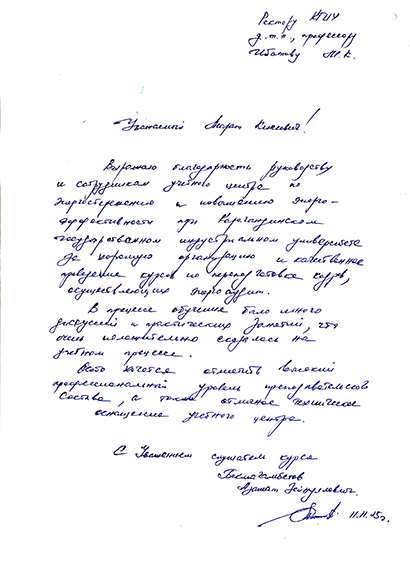 Ректору КГИУ
д.т.н., профессору
Ибатову М.К.
Уважаемый Марат Кенесович!
Выражаю благодарность руководству
и сотрудникам учебного центра по
энергосбережению и повышению энерго-
эффективности при Карагандинском
государственном индустриальном университете
за хорошую организацию и качественное
проведение курсов по переподготовке кадров,
осуществляющих энергоаудит.
В процессе обучение было много
дискуссий и практических занятий, что
очень положительно сказалось на
учебном процессе.
хочется отметить высокий
профессиональный уровень преподавательского
состава, а также отличное техническое
оснащение учебного центра.
С Уважением слушатель курса
Азамат
11.11.15г.